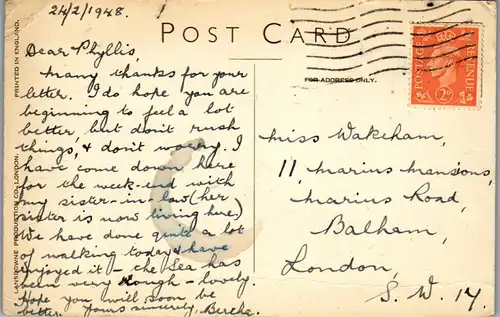 24/2/1948.
POST CARD
FOR ADDRESS ONLY.
PRINTED IN ENGLAND.
LANSDOWNE PRODUCTION CO., LONDON.
POSTAGE
REVENUE
2D
Dear Phyllis
Many thanks for your
letter. I do hope you are
beginning to feel a lot
better, but don't rush
things, & don't worry. I
have come down here
for the week-end with
my sister-in-law (her
sister is now living here)
We have done quite a lot
of walking today & have
enjoyed it – the Sea has
been very rough – lovely.
Hope you will soon be
better. Yours sincerely, Bertha.
Miss Wakeham,
11, Marius Mansions,
Marius Road,
Balham,
London,
S. W. 17.